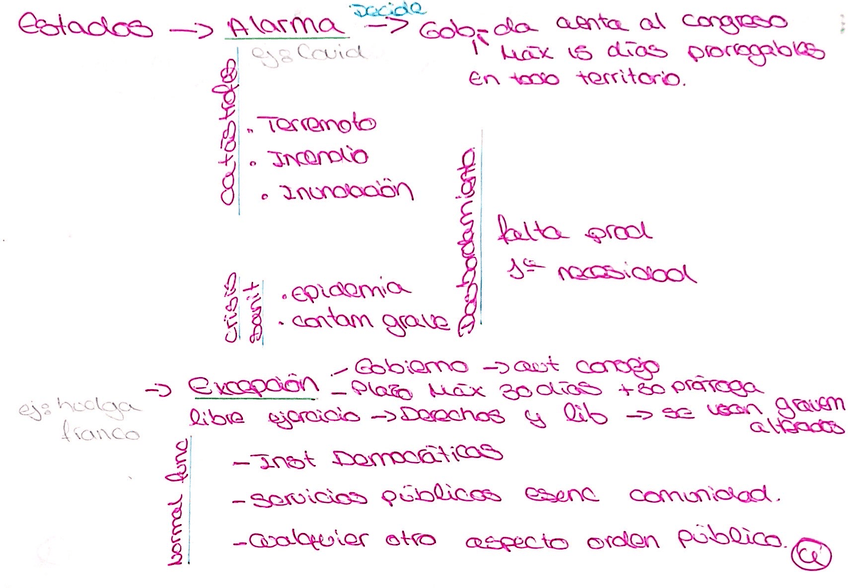 Estados → Alarma → Decide Gob - da cuenta al congreso
ej: Covid
Máx 15 días prorrogables
En todo territorio.
catástrofes
• Terremoto
• Incendio
• Inundación
Desbordamiento
falta prod
1ª necesidad
crisis sanit
• epidemia
• contam grave
→ Excepción - Gobierno → aut congo
- Plazo Máx 30 días + 30 prórroga
ej: huelga franco
libre ejercicio → Derechos y lib → se vean gravem alterados
Normal func
- Inst Democráticas
- servicios públicos esenc comunidad.
- cualquier otro aspecto orden público.